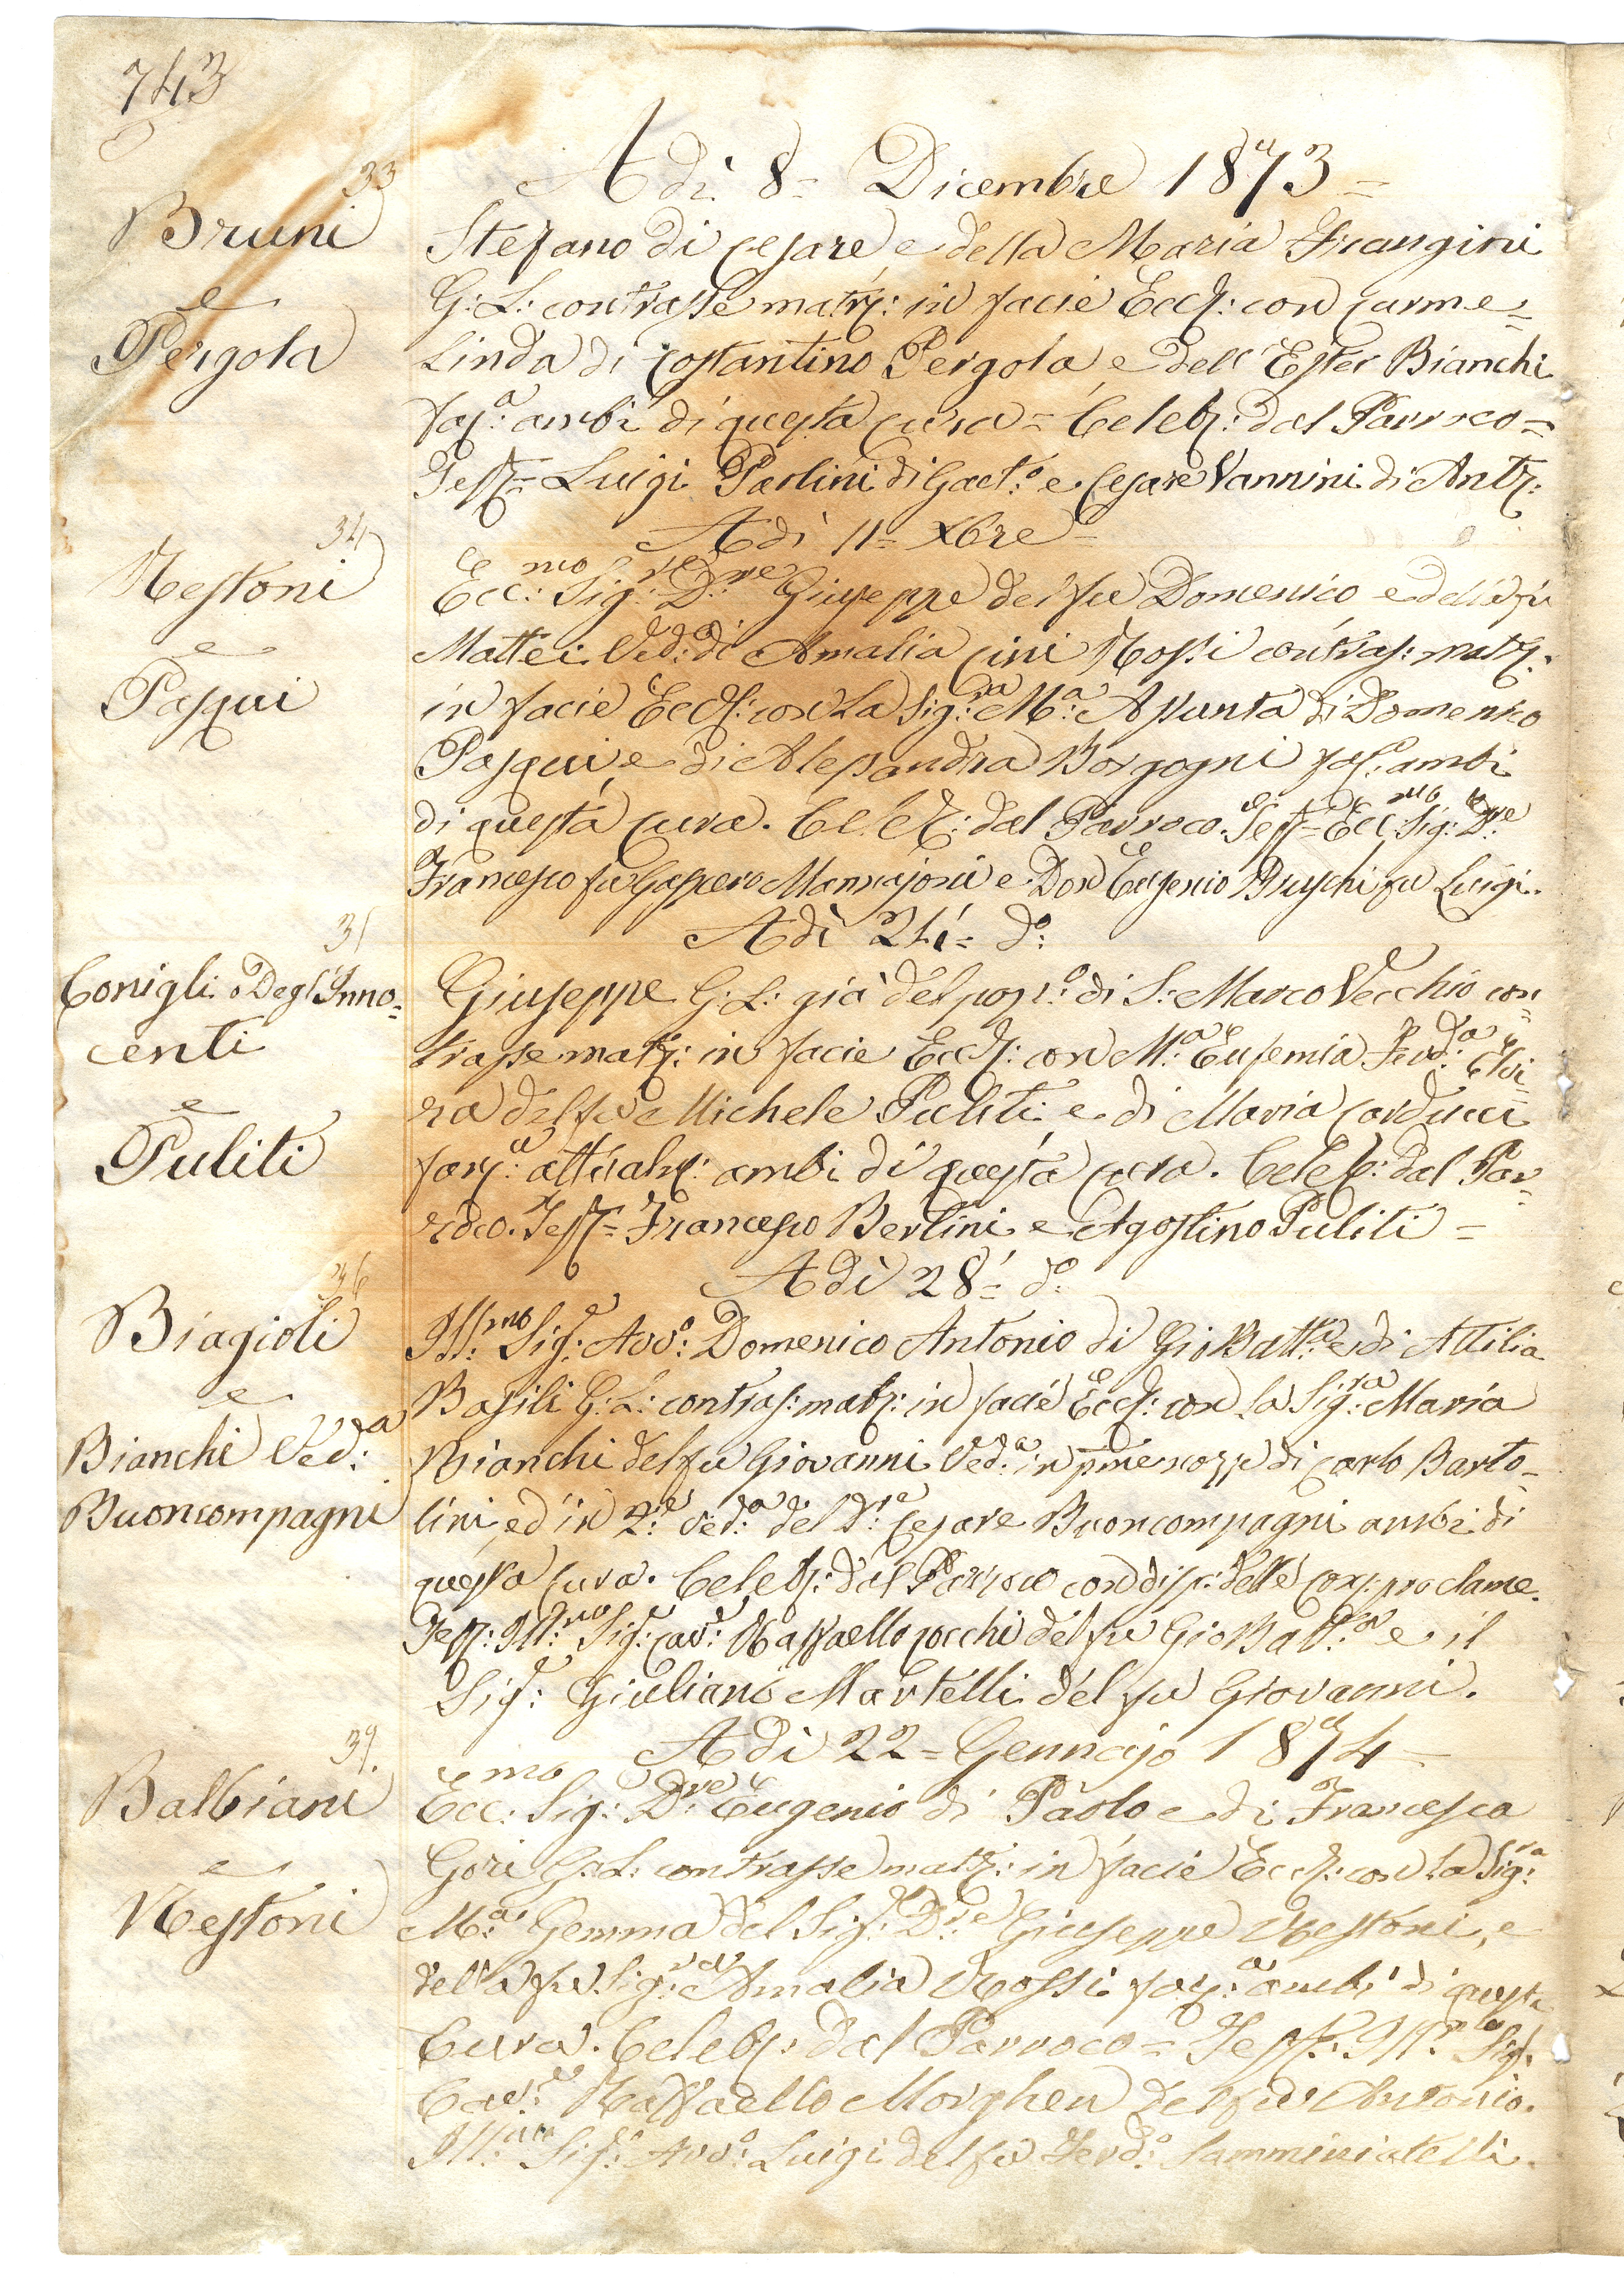 743
Adì 8= Dicembre 1873=
33
Bruni
e
Pergola
Stefano di Cesare e della Maria Frangini
G: L: contrasse matr: in facie Eccl: con Carme=
linda di Costantino Pergola e dell'Ester Bianchi
ambi di questa Cura= Celeb: dal Parroco=
Test= Luigi Paolini di Gaet:o e Cesare Vannini di Ant:
Adì 11= Xbre=
34
Nestoni
e
Pasqui
Ecc:mo Sig:re D:re Giuseppe del fu Domenico e della fu
Mattei Ved: di Amalia Cini Rossi contras: matr:
in facie Eccl: con la Sig:ra M:a Assunta di Domenico
Pasqui e di Alessandra Borgogni ambi
di questa Cura. Celeb: dal Parroco. Test= Ecc:mo Sig:re D:re
Francesco fu Gaspero Mannajoni e Don Eugenio Bruschi fu Luigi.
Adì 24= d:o
35
Conigli o Degl'Inno=
centi
e
Puliti
Giuseppe G: L: già del pop:o di S: Marco Vecchio con=
trasse matr: in facie Eccl: con M:a Eufemia Ferd:a Elvi=
ra del fu Michele Puliti e di Maria Carducci
ambi di questa Cura. Celeb: dal Par=
roco. Test= Francesco Berlini e Agostino Puliti=
Adì 28= d:o
36
Biagioli
e
Bianchi Ved:a
Buoncompagni
Ill:mo Sig:e Avv:o Domenico Antonio di Gio Batt:a e di Attilia
Basili G: L: contras: matr: in facie Eccl: con la Sig:ra Maria
Bianchi del fu Giovanni Ved:a in pme nozze di Carlo Barto=
lini, ed in 2:e ved:a del D:re Cesare Buoncompagni ambi di
questa Cura. Celeb: dal Parroco con disp: delle proclame.
Test: Ill:mo Sig:e Cav:e Raffaello Cocchi del fu Gio Batt:a e il
Sig:e Giuliano Martelli del fu Giovanni.
Adì 22= Gennajo 1874=
37.
Balbiani
e
Nestoni
Ecc:mo Sig:e D:re Eugenio di Paolo e di Francesca
Gori G: L: contrasse matr: in facie Eccl: con la Sig:ra
M:a Gemma del Sig:e D:re Giuseppe Nestoni, e
della fu Sig:ra Amalia Rossi ambi di questa
Cura. Celeb: dal Parroco= Test: Ill:mo Sig:
Cav:e Raffaello Morghen del fu Antonio.
Ill:mo Sig:e Avv:o Luigi del fu Ferd:o Samminiatelli.